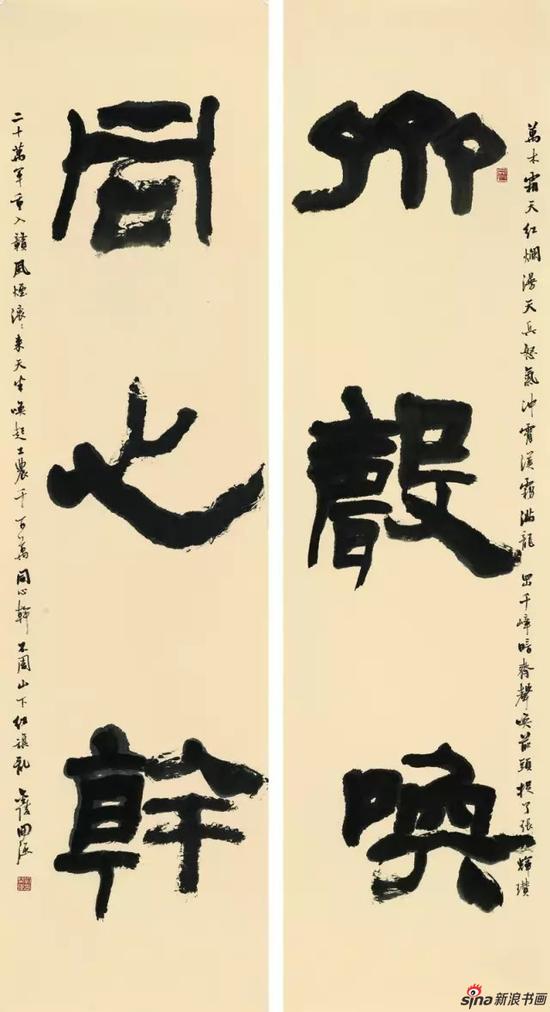 萬木霜天紅爛漫天兵怒氣沖霄漢霧滿龍岡千嶂暗齊聲喚前頭捉了張輝瓚
齊聲喚
同心幹
二十萬軍重入贛風煙滾〻來天半喚起工農千百萬同心幹不周山下紅旗亂
sina新浪书画